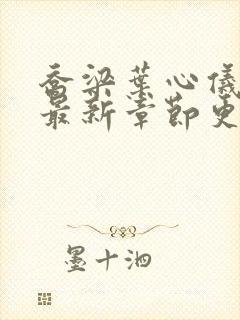 乔梁葉心儀
最新章節更
墨十泗